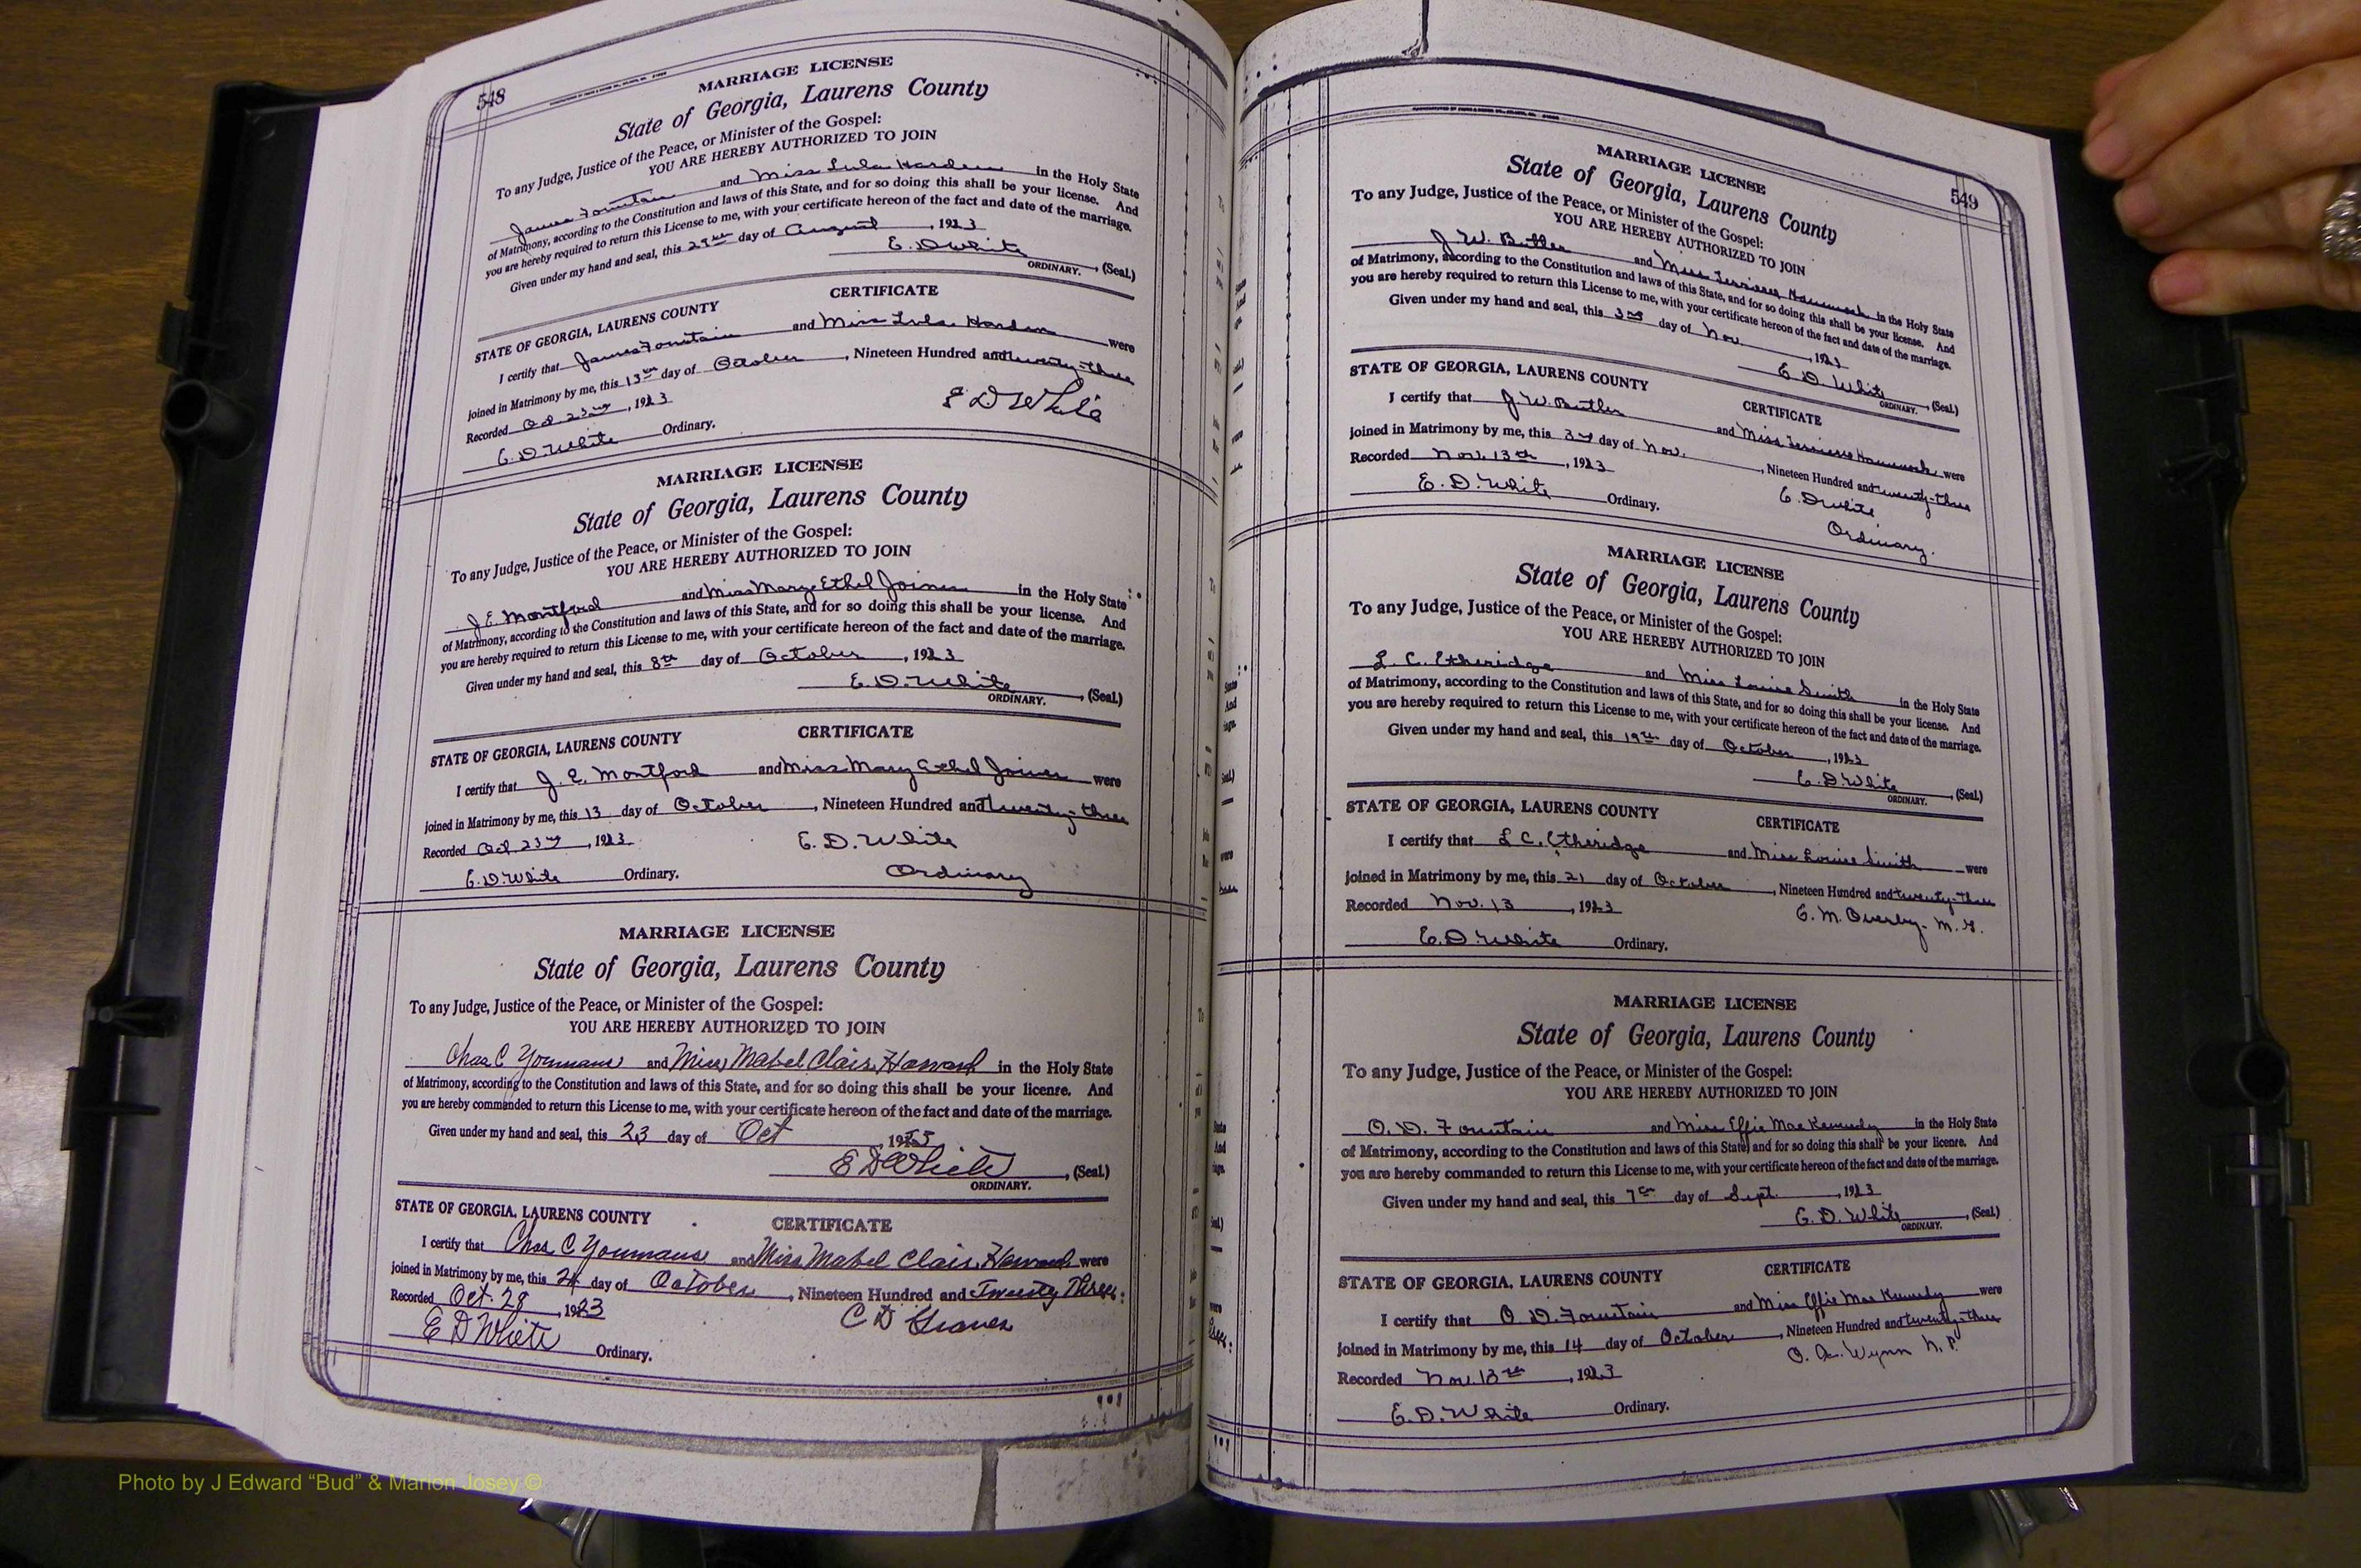 548
MARRIAGE LICENSE
State of Georgia, Laurens County
To any Judge, Justice of the Peace, or Minister of the Gospel:
YOU ARE HEREBY AUTHORIZED TO JOIN
James Fountain and Miss Lula Harden in the Holy State
of Matrimony, according to the Constitution and laws of this State, and for so doing this shall be your license. And
you are hereby required to return this License to me, with your certificate hereon of the fact and date of the marriage.
Given under my hand and seal, this 29th day of August, 1923
E. D. White, (Seal.)
ORDINARY.
CERTIFICATE
STATE OF GEORGIA, LAURENS COUNTY
I certify that James Fountain and Miss Lula Harden were
joined in Matrimony by me, this 13th day of October, Nineteen Hundred and twenty-three
Recorded Oct. 23rd, 1923
E D White
E. D. White Ordinary.
MARRIAGE LICENSE
State of Georgia, Laurens County
To any Judge, Justice of the Peace, or Minister of the Gospel:
YOU ARE HEREBY AUTHORIZED TO JOIN
J. E. Montford and Miss Mary Ethel Joiner in the Holy State
of Matrimony, according to the Constitution and laws of this State, and for so doing this shall be your license. And
you are hereby required to return this License to me, with your certificate hereon of the fact and date of the marriage.
Given under my hand and seal, this 8th day of October, 1923
E. D. White, (Seal.)
ORDINARY.
CERTIFICATE
STATE OF GEORGIA, LAURENS COUNTY
I certify that J. E. Montford and Miss Mary Ethel Joiner were
joined in Matrimony by me, this 13 day of October, Nineteen Hundred and twenty-three
Recorded Oct. 23rd, 1923.
E. D. White
E. D. White Ordinary.
Ordinary
MARRIAGE LICENSE
State of Georgia, Laurens County
To any Judge, Justice of the Peace, or Minister of the Gospel:
YOU ARE HEREBY AUTHORIZED TO JOIN
Chas C Youmans and Miss Mabel Clair Howard in the Holy State
of Matrimony, according to the Constitution and laws of this State, and for so doing this shall be your license. And
you are hereby commanded to return this License to me, with your certificate hereon of the fact and date of the marriage.
Given under my hand and seal, this 23 day of Oct
E D White, (Seal.)
ORDINARY.
STATE OF GEORGIA, LAURENS COUNTY
CERTIFICATE
I certify that Chas. C Youmans and Miss Mabel Clair Howard were
joined in Matrimony by me, this 24 day of October, Nineteen Hundred and Twenty Three
Recorded Oct. 28, 1923
C D Graves
E D White Ordinary.
549
MARRIAGE LICENSE
State of Georgia, Laurens County
To any Judge, Justice of the Peace, or Minister of the Gospel:
YOU ARE HEREBY AUTHORIZED TO JOIN
J. W. Butler and Miss Hammock in the Holy State
of Matrimony, according to the Constitution and laws of this State, and for so doing this shall be your license. And
you are hereby required to return this License to me, with your certificate hereon of the fact and date of the marriage.
Given under my hand and seal, this 3rd day of Nov., 1923
E. D. White, (Seal.)
ORDINARY.
STATE OF GEORGIA, LAURENS COUNTY
CERTIFICATE
I certify that J. W. Butler and Miss Hammock were
joined in Matrimony by me, this 3rd day of Nov., Nineteen Hundred and twenty-three
Recorded Nov. 13th, 1923
E. D. White
E. D. White Ordinary.
Ordinary.
MARRIAGE LICENSE
State of Georgia, Laurens County
To any Judge, Justice of the Peace, or Minister of the Gospel:
YOU ARE HEREBY AUTHORIZED TO JOIN
L. C. Etheridge and Miss Louise Smith in the Holy State
of Matrimony, according to the Constitution and laws of this State, and for so doing this shall be your license. And
you are hereby required to return this License to me, with your certificate hereon of the fact and date of the marriage.
Given under my hand and seal, this 19th day of October, 1923
E. D. White, (Seal.)
ORDINARY.
STATE OF GEORGIA, LAURENS COUNTY
CERTIFICATE
I certify that L. C. Etheridge and Miss Louise Smith were
joined in Matrimony by me, this 21 day of October, Nineteen Hundred and twenty-three
Recorded Nov. 13, 1923
E. M. Overby - M. G.
E. D. White Ordinary.
MARRIAGE LICENSE
State of Georgia, Laurens County
To any Judge, Justice of the Peace, or Minister of the Gospel:
YOU ARE HEREBY AUTHORIZED TO JOIN
O. D. Fountain and Miss Effie Mae Kennedy in the Holy State
of Matrimony, according to the Constitution and laws of this State, and for so doing this shall be your license. And
you are hereby commanded to return this License to me, with your certificate hereon of the fact and date of the marriage.
Given under my hand and seal, this 7th day of Sept., 1923
E. D. White, (Seal.)
ORDINARY.
CERTIFICATE
STATE OF GEORGIA, LAURENS COUNTY
I certify that O. D. Fountain and Miss Effie Mae Kennedy were
joined in Matrimony by me, this 14 day of October, Nineteen Hundred and twenty-three
Recorded Nov. 13th, 1923
O. A. Wynn N. P.
E. D. White Ordinary.
Photo by J Edward “Bud” & Marion Josey ©